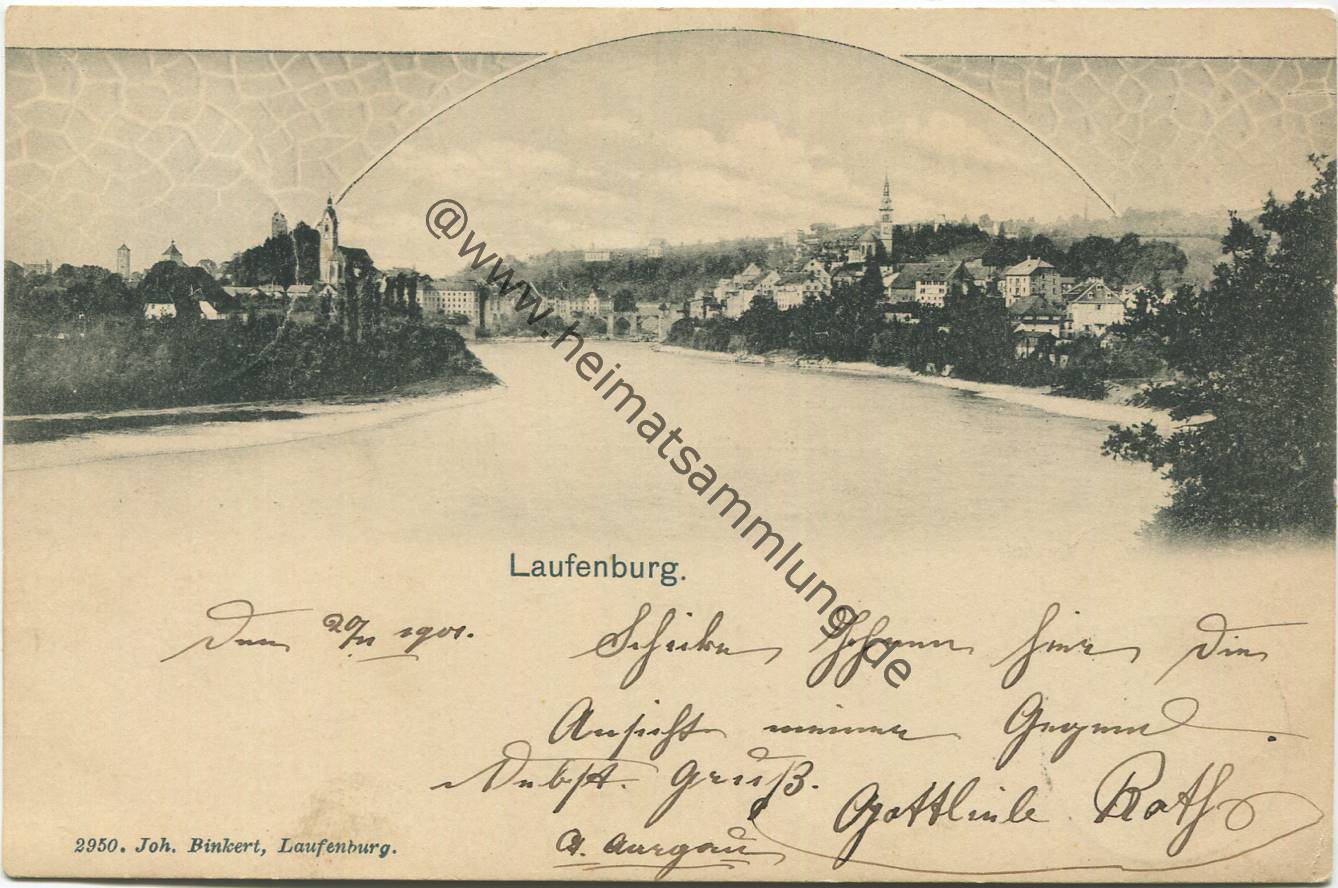 Laufenburg.
Den 20/II 1901. Schicke Ihnen hier die
Ansicht meiner Gegend.
Nebst Gruß.
Gottlieb Roth
Kt. Aargau
2950. Joh. Binkert, Laufenburg.
@www.heimatsammlung.de